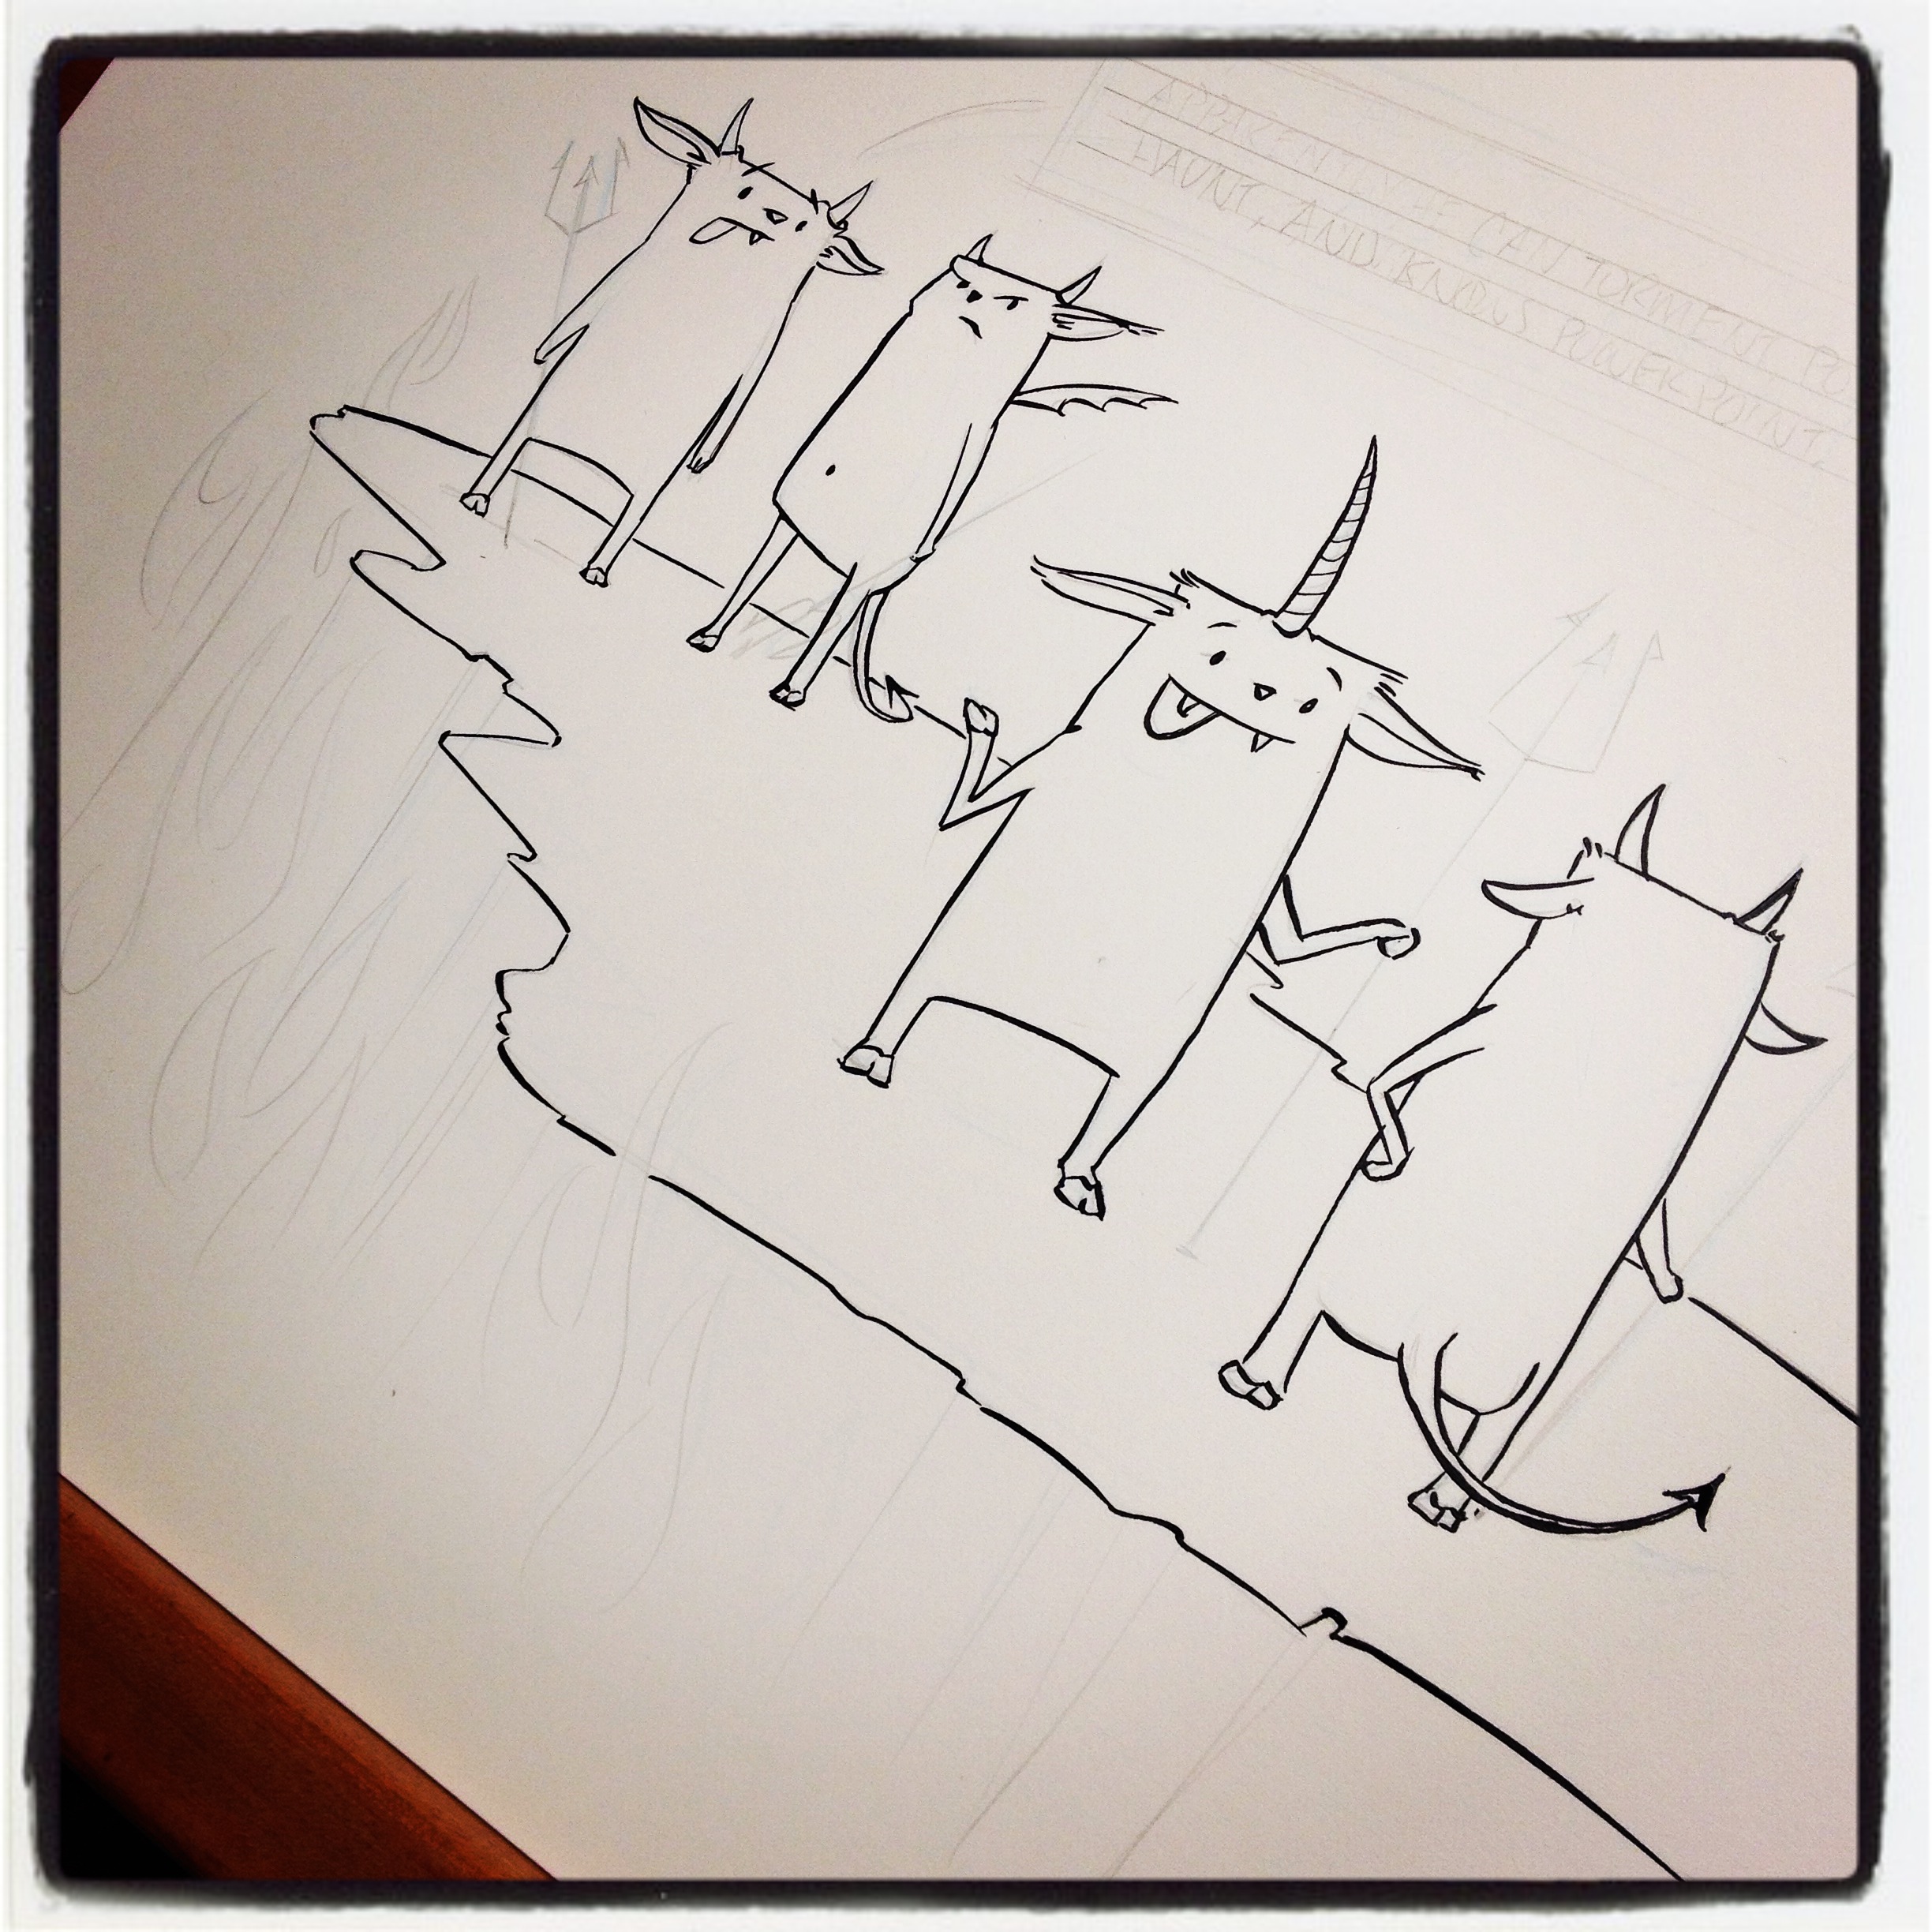 APPARENTLY HE CAN TORMENT, PO
HAUNT, AND KNOWS POWERPOINT.